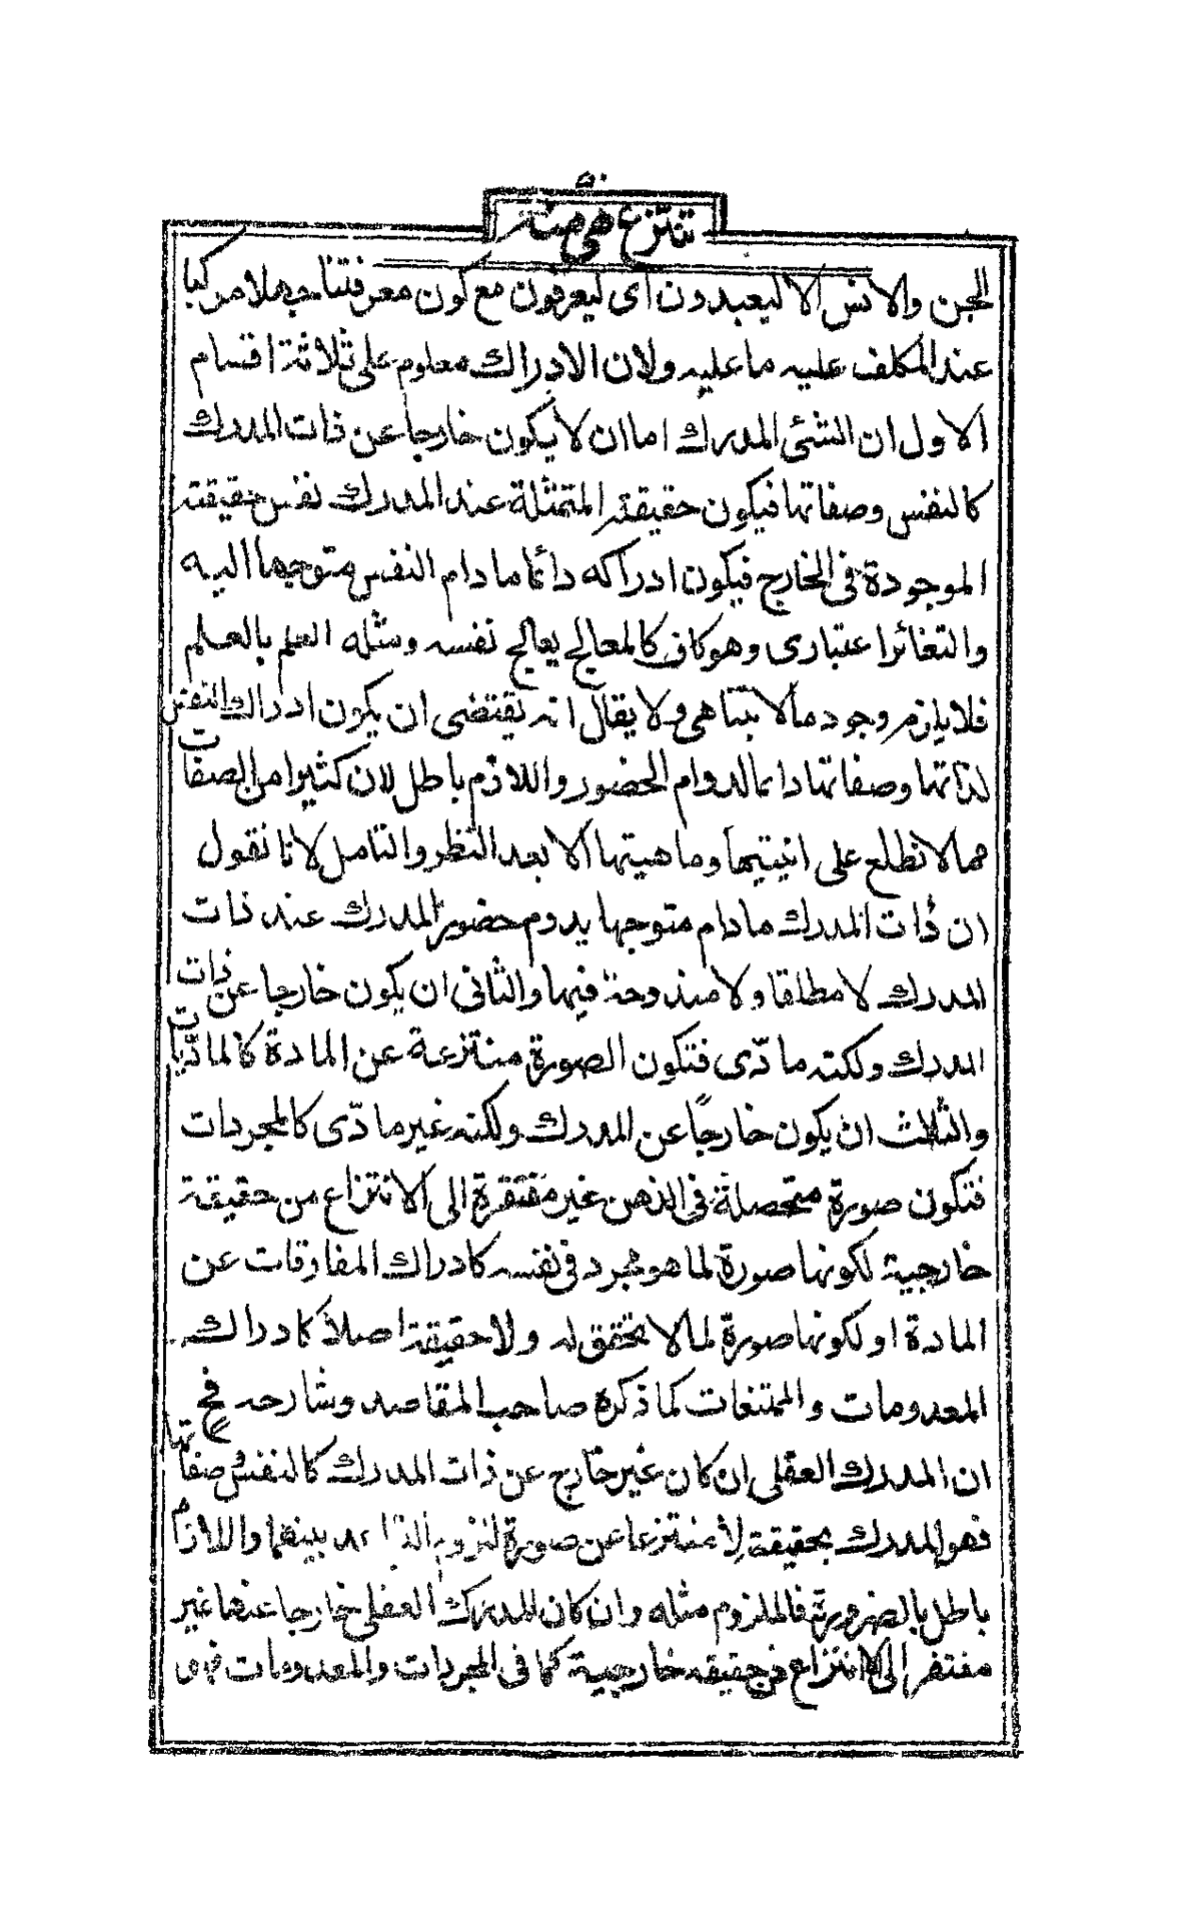 تنتزع هى منه
الجن والانس الا ليعبدون اى ليعرفون مع كون معرفتنا جهلا مركبا
عند المكلف عليه ما عليه ولان الادراك معلوم على ثلاثة اقسام
الاول ان الشئ المدرك اما ان لا يكون خارجا عن ذات المدرك
كالنفس وصفاتها فيكون حقيقته المتمثلة عند المدرك نفس حقيقته
الموجودة فى الخارج فيكون ادراكه دائما مادام النفس متوجها اليه
والتغائر اعتبارى وهو كاف كالمعالج يعالج نفسه ومثله العلم بالعلم
فلا يلزم وجود مالا يتناهى ولا يقال انه يقتضى ان يكون ادراك النفس
لذاتها وصفاتها دائما لدوام الحضور واللازم باطل لان كثيرا من الصفات
مما لا نطلع على انيتها وماهيتها الا بعد النظر والتامل لانا نقول
ان ذات المدرك مادام متوجها يدوم حضور المدرك عند ذات
المدرك لا مطلقا ولا مندوحة فيها والثانى ان يكون خارجا عن ذات
المدرك ولكنه مادّى فتكون الصورة منتزعة عن المادة كالمادّيات
والثالث ان يكون خارجًا عن المدرك ولكنه غير مادّى كالمجردات
فتكون صورة متحصلة فى الذهن غير مفتقرة الى الانتزاع من حقيقة
خارجية لكونها صورة لما هو مجرد فى نفسه كادراك المفارقات عن
المادة او لكونها صورة لما لا تحقق له ولا حقيقة اصلا كادراك
المعدومات والممتنعات كما ذكره صاحب المقاصد وشارحه فح
ان المدرك العقلى ان كان غير خارج عن ذات المدرك كالنفس وصفاتها
فهو المدرك بحقيقة لا منتزعا عن صورة لزوم بينهما واللازم
باطل بالضرورة فالملزوم مثله وان كان المدرك العقلى خارجا عنها غير
مفتقر الى الانتزاع من حقيقه خارجية كما فى المجردات والمعدومات